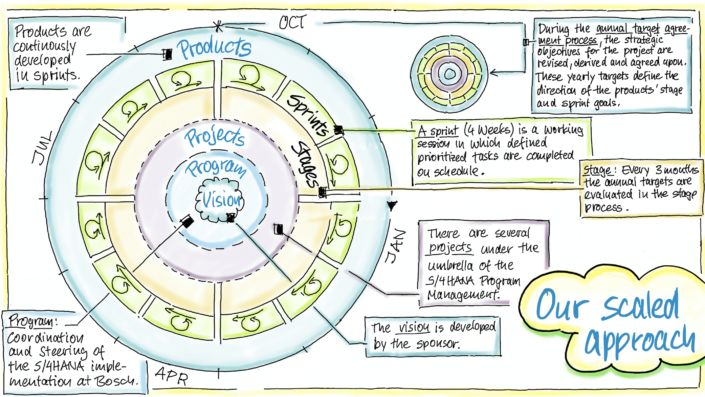 Products are
continously
developed
in sprints.
OCT
Products
During the annual target agree-
ment process, the strategic
objectives for the project are
revised, derived and agreed upon.
These yearly targets define the
direction of the products' stage
and sprint goals.
Sprints
A sprint (4 Weeks) is a working
session in which defined
prioritized tasks are completed
on schedule.
JUL
Projects
Stages
Program
Vision
Stage: Every 3 months
the annual targets are
evaluated in the stage
process.
JAN
There are several
projects under the
umbrella of the
S/4HANA Program
Management.
Our scaled
approach
The vision is developed
by the sponsor.
Program:
Coordination
and Steering of
the S/4HANA imple-
mentation at Bosch.
APR